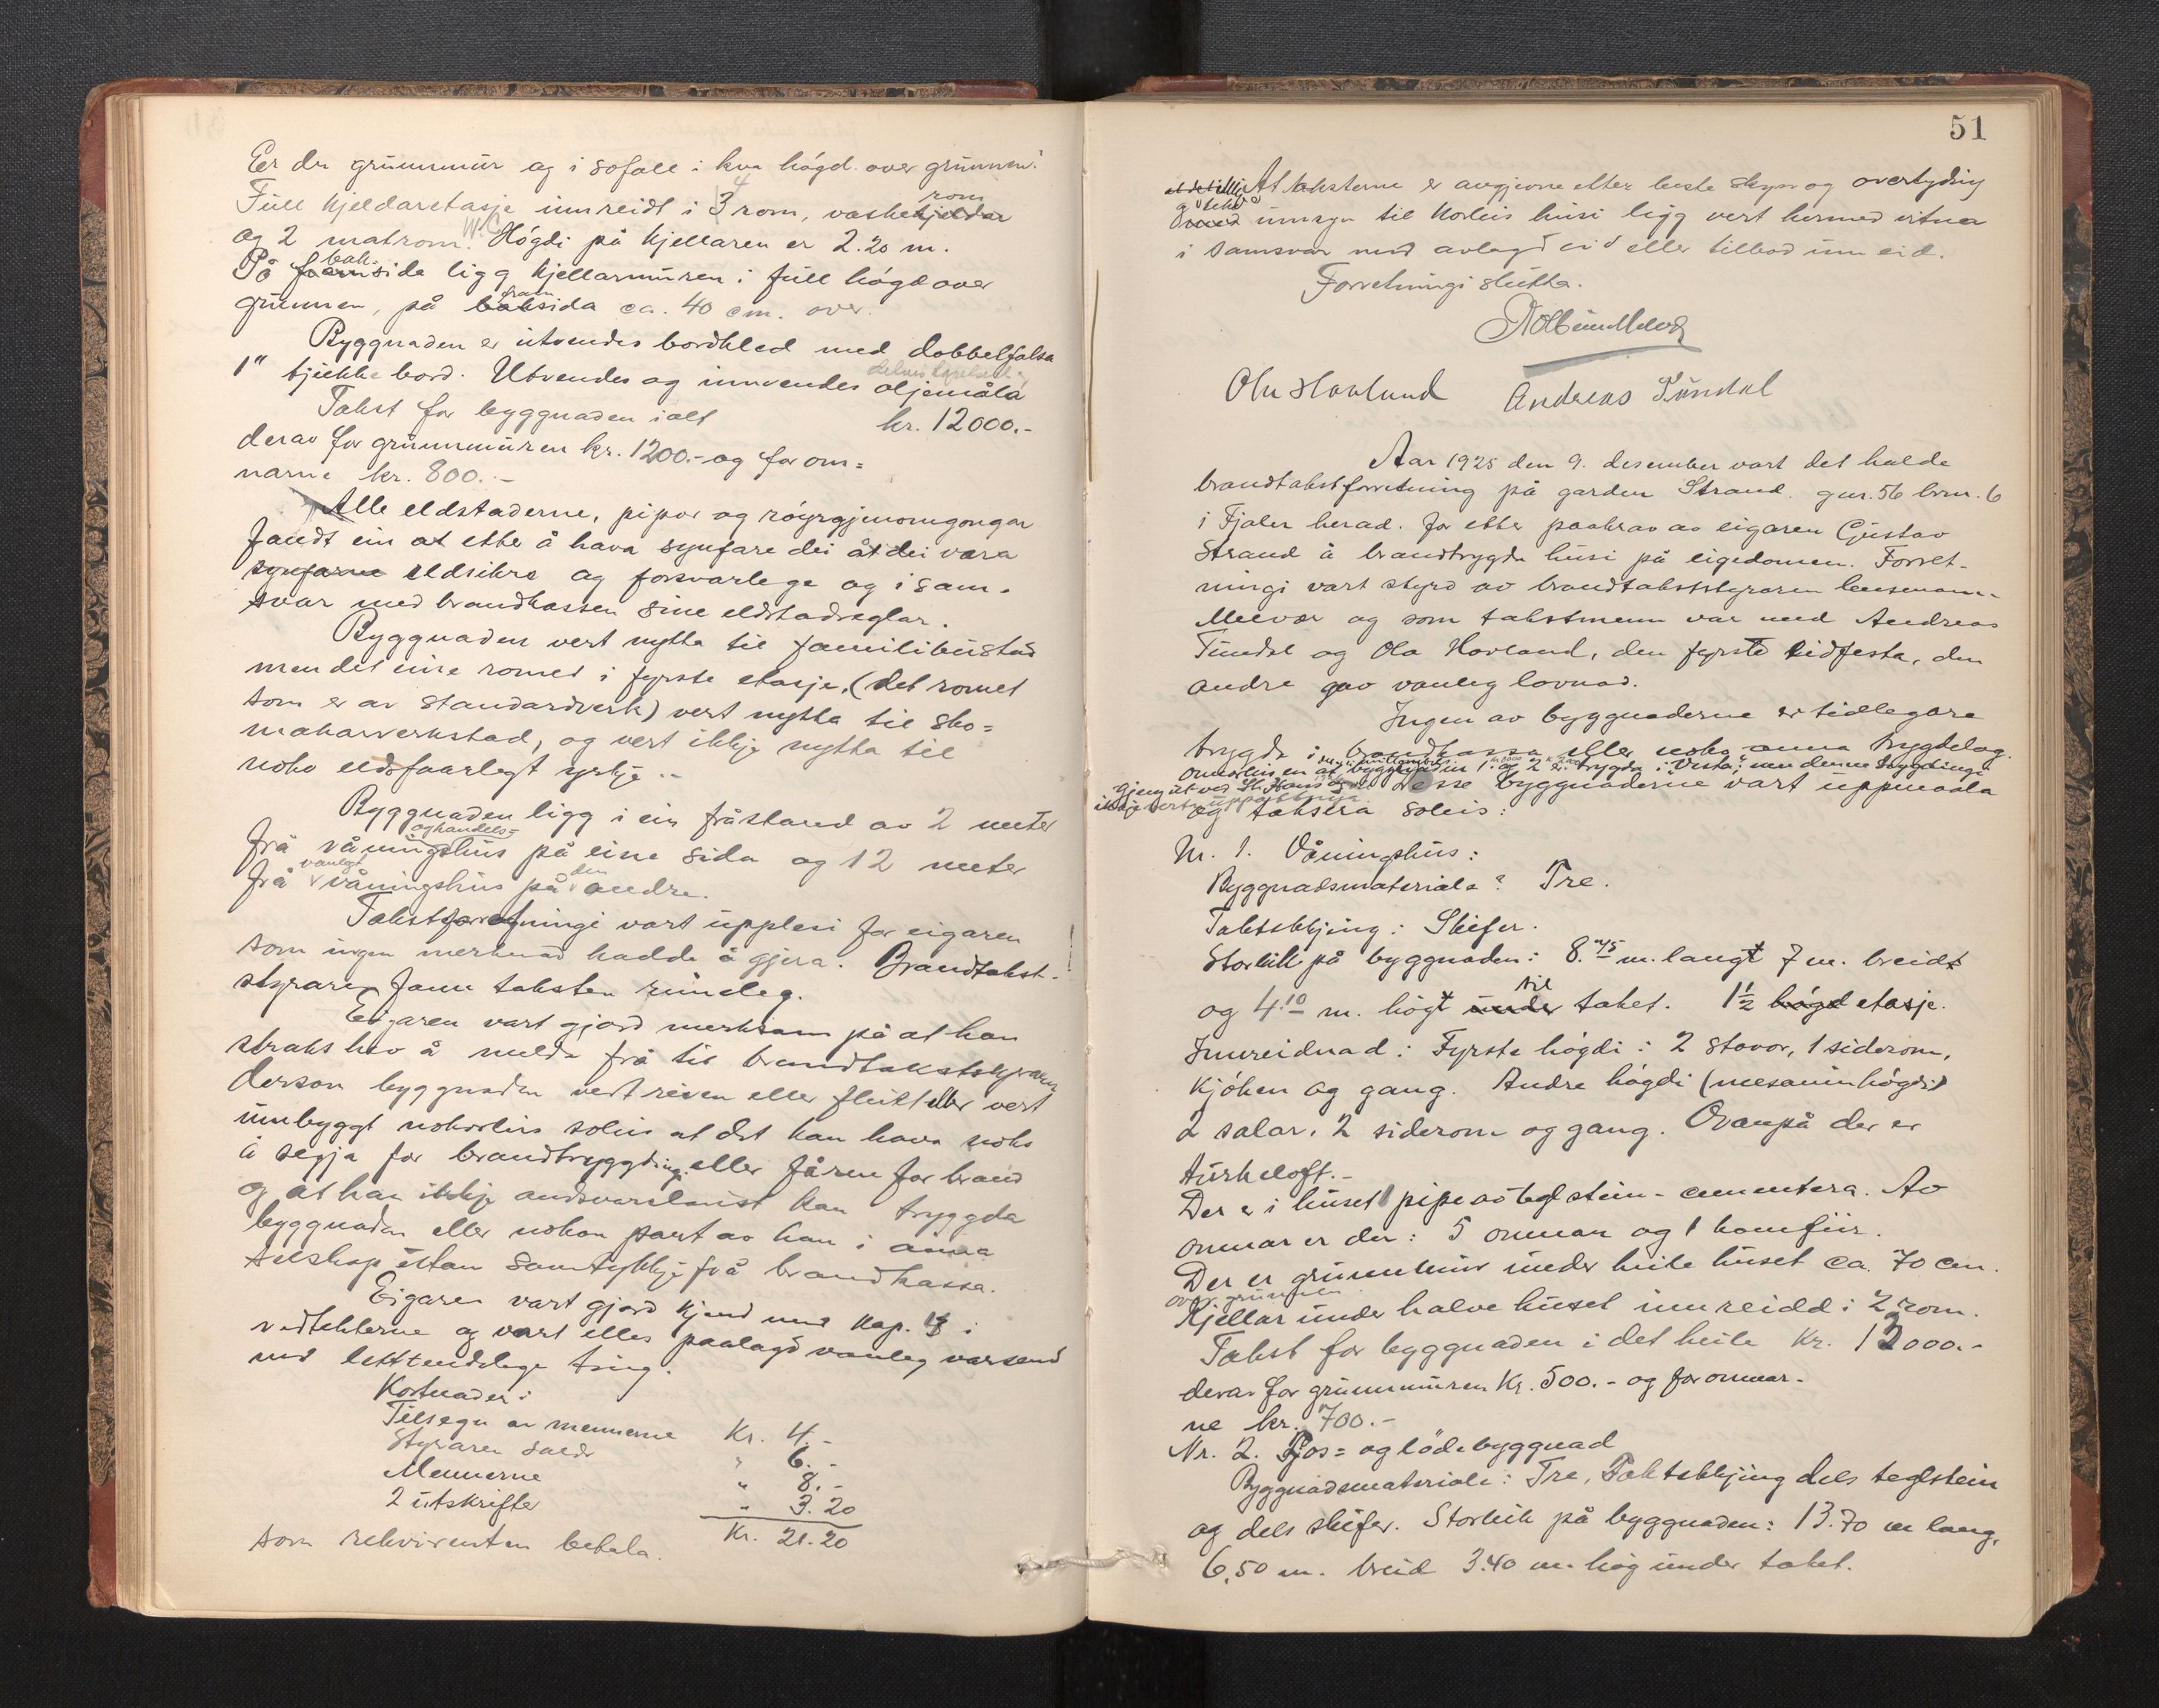 Er der grunnmur og i sofall i kva högd over grunnen?
Full kjeldaretasje innreidt i 3 4 rom, vaskekjeldar rom
og 2 matrom. W.C. Högdi på kjellaren er 2.20 m.
På framsida bak- ligg kjellarmuren i full högd over
grunnen, på baksida fram ca. 40 cm. over.
Byggnaden er utvendes bordkled med dobbelfalsa
1" tjukke bord. Utvendes og innvendes oljemåla
Takst for byggnaden ialt kr. 12000.-
derav for grunnmuren kr. 1200.- og for om=
narne kr. 800.-
Alle eldstaderne, pipor og röyrgjenomgongar
fandt ein at etter å hava synfare dei åt dei vara
synfarne eldsikre og forsvarlege og i sam-
svar med brandkassen sine eldstadreglar.
Byggnaden vert nytta til familibustad
men det eine romet i fyrste etasje, (det romet
som er av standardverk) vert nytta til sko=
makarverkstad, og vert ikkje nytta til
noko eldsfaarlegt yrkje.-
Byggnaden ligg i ein fråstand av 2 meter
frå våningshus og handels= på eine sida og 12 meter
frå vanlegt våningshus på den andre.
Takstforretningi vart upplesi for eigaren
som ingen merknad hadde å gjera. Brandtakst-
styraren fann taksten rimeleg.
Eigaren vart gjord merksam på at han
straks hev å melda frå til brandtakststyraren
derson byggnaden vert reven eller flutt eller vert
umbyggt nokorleis soleis at det kan hava noko
å segja for brandtryggdingi eller fåren for brand
og at han ikkje andsvarslaust kan tryggda
byggnaden eller nokon part av han i anna
selskap utan samtykkje frå brandkassa.
Eigaren vart gjord kjend med kap. 4 i
vedtekterne og vart elles paalagd vanleg varsemd
med lettendelege ting.
Kostnader:
Tilsegn av mennerne Kr. 4.-
Styraren " 6.-
Mennerne " 8.-
2 utskrifter " 3.20
som rekvirenten betala. Kr. 21.20
51
At taksterne er avgjevne etter beste skyn og overtyding
umsyn til korleis husi ligg vert hermed vitna
i samsvar med avlagd eid eller tilbod um eid.
Forretningi slutta.
Ola Hovland Andreas Tundal
Aar 1925 den 9. desember vart det halde
brandtakstforretning på garden Strand. gnr. 56 brnr. 6
i Fjaler herad. for etter paakrav av eigaren Gustav
Strand å brandtrygde husi på eigedomen. Forret-
ningi vart styrd av brandtakststyraren lensmann
Meevær og som takstmenn var med Andreas
Tundal og Ola Hovland, den fyrste eidfesta, den
andre gav vanleg lovnad.
Ingen av byggnaderne er tidlegare
trygde i brandkassa eller noko anna trygdelag.
byggnaden 1. og 2 er trygda i Vesta, men denne trygdingi
gjeng ut ved Desse byggnaderne vart uppmaala
ikkje vert og taksera soleis:
Nr. 1. Våningshus:
Byggnadsmateriale: Tre.
Taktekkjing: Skifer.
Storleik på byggnaden: 8.45 m. langt 7 m. breidt
og 4.10 m. högt under til taket. 1 1/2 högd etasje.
Innreidnad: Fyrste högdi: 2 stovor, 1 siderom,
kjöken og gang. Andre högdi (mesaninhögdi)
2 salar, 2 siderom og gang. Ovanpå der er
turkeloft.-
Der er i huset 1 pipe av teglstein - cementera. Av
omnar er der: 5 omnar og 1 komfür.
Der er grunnmur under heile huset ca. 70 cm.
over grunnen
Kjellar under halve huset innreidd i 2 rom.
Takst for byggnaden i det heile Kr. 12000.-
derav for grunnmuren Kr. 500.- og for omnar-
ne kr. 700.-
Nr. 2. Fjos= og lödebyggnad
Byggnadsmateriale: Tre, Taktekkjing dels teglstein
og dels skifer. Storleik på byggnaden: 13.70 m lang,
6,50 m. breid 3.40 m. hög under taket.